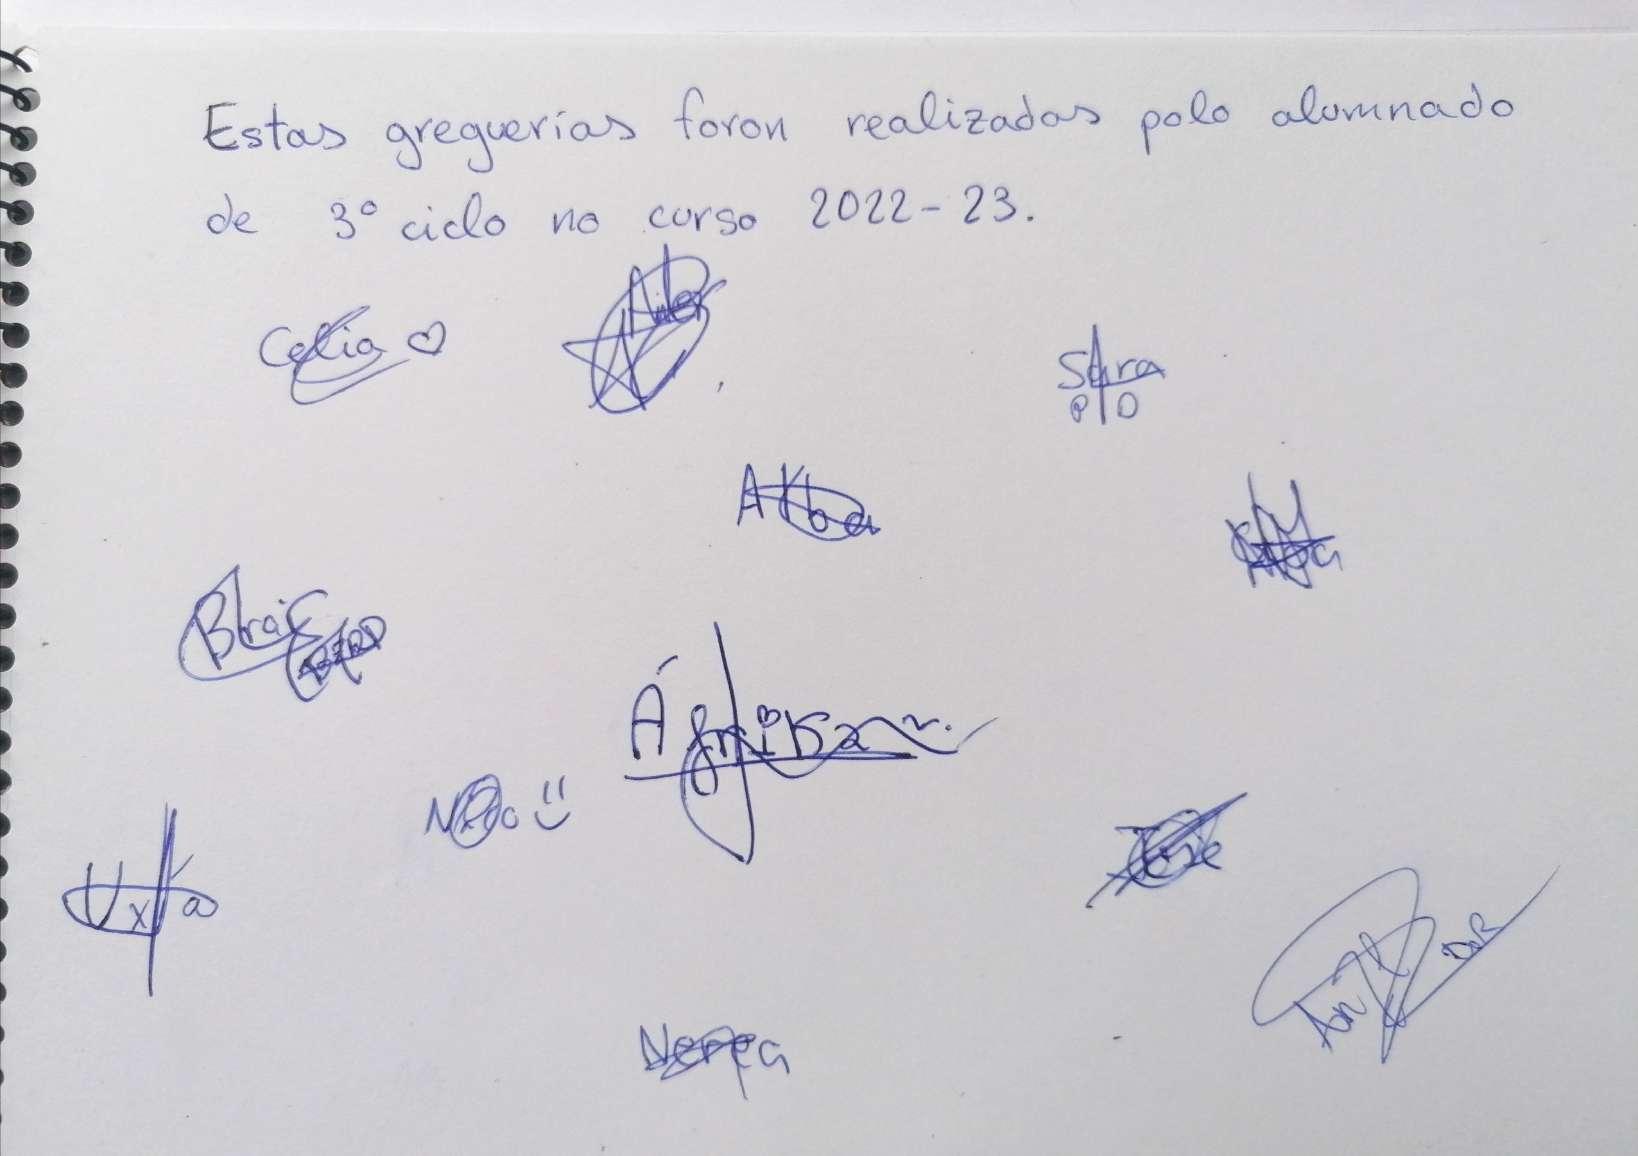 Estas greguerías foron realizadas polo alumnado
de 3º ciclo no curso 2022-23.
Celia ♡
Sara
P D
Alba
Brais
Áfrika
Uxía
Nerea